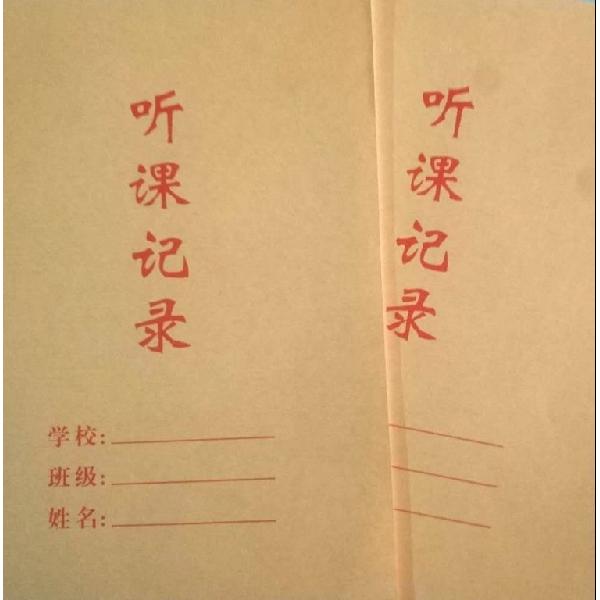 听课记录
学校:
班级:
姓名:
听课记录